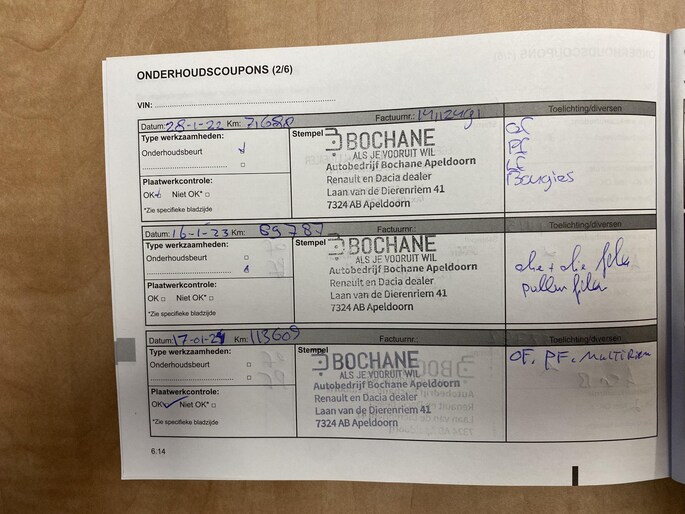 ONDERHOUDSCOUPONS (2/6)
VIN:
Datum: 28-1-22 Km: 71680 Factuurnr.: Toelichting/diversen
Type werkzaamheden:
Onderhoudsbeurt
Plaatwerkcontrole:
OK Niet OK*
*Zie specifieke bladzijde
Stempel BOCHANE
ALS JE VOORUIT WIL
Autobedrijf Bochane Apeldoorn
Renault en Dacia dealer
Laan van de Dierenriem 41
7324 AB Apeldoorn
OF
PF
LF
Bougies
Datum: 16-1-23 Km: 89787 Factuurnr.: Toelichting/diversen
Type werkzaamheden:
Onderhoudsbeurt
Plaatwerkcontrole:
OK Niet OK*
*Zie specifieke bladzijde
Stempel BOCHANE
ALS JE VOORUIT WIL
Autobedrijf Bochane Apeldoorn
Renault en Dacia dealer
Laan van de Dierenriem 41
7324 AB Apeldoorn
olie + olie filter
pollen filter
Datum: 17-01-24 Km: 113609 Factuurnr.: Toelichting/diversen
Type werkzaamheden:
Onderhoudsbeurt
Plaatwerkcontrole:
OK Niet OK*
*Zie specifieke bladzijde
Stempel BOCHANE
ALS JE VOORUIT WIL
Autobedrijf Bochane Apeldoorn
Renault en Dacia dealer
Laan van de Dierenriem 41
7324 AB Apeldoorn
OF, PF, MULTIRIEM
6.14